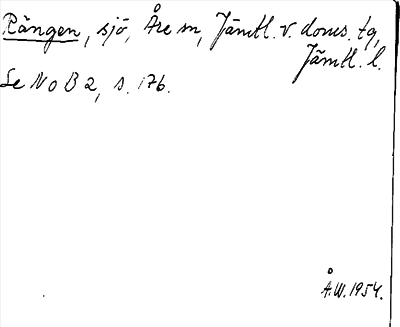 Rängen, sjö, Åre sn, Jämtl. v. doms. tg,
Jämtl. l.
Se NoB 2, s. 176.
Å.W. 1954.